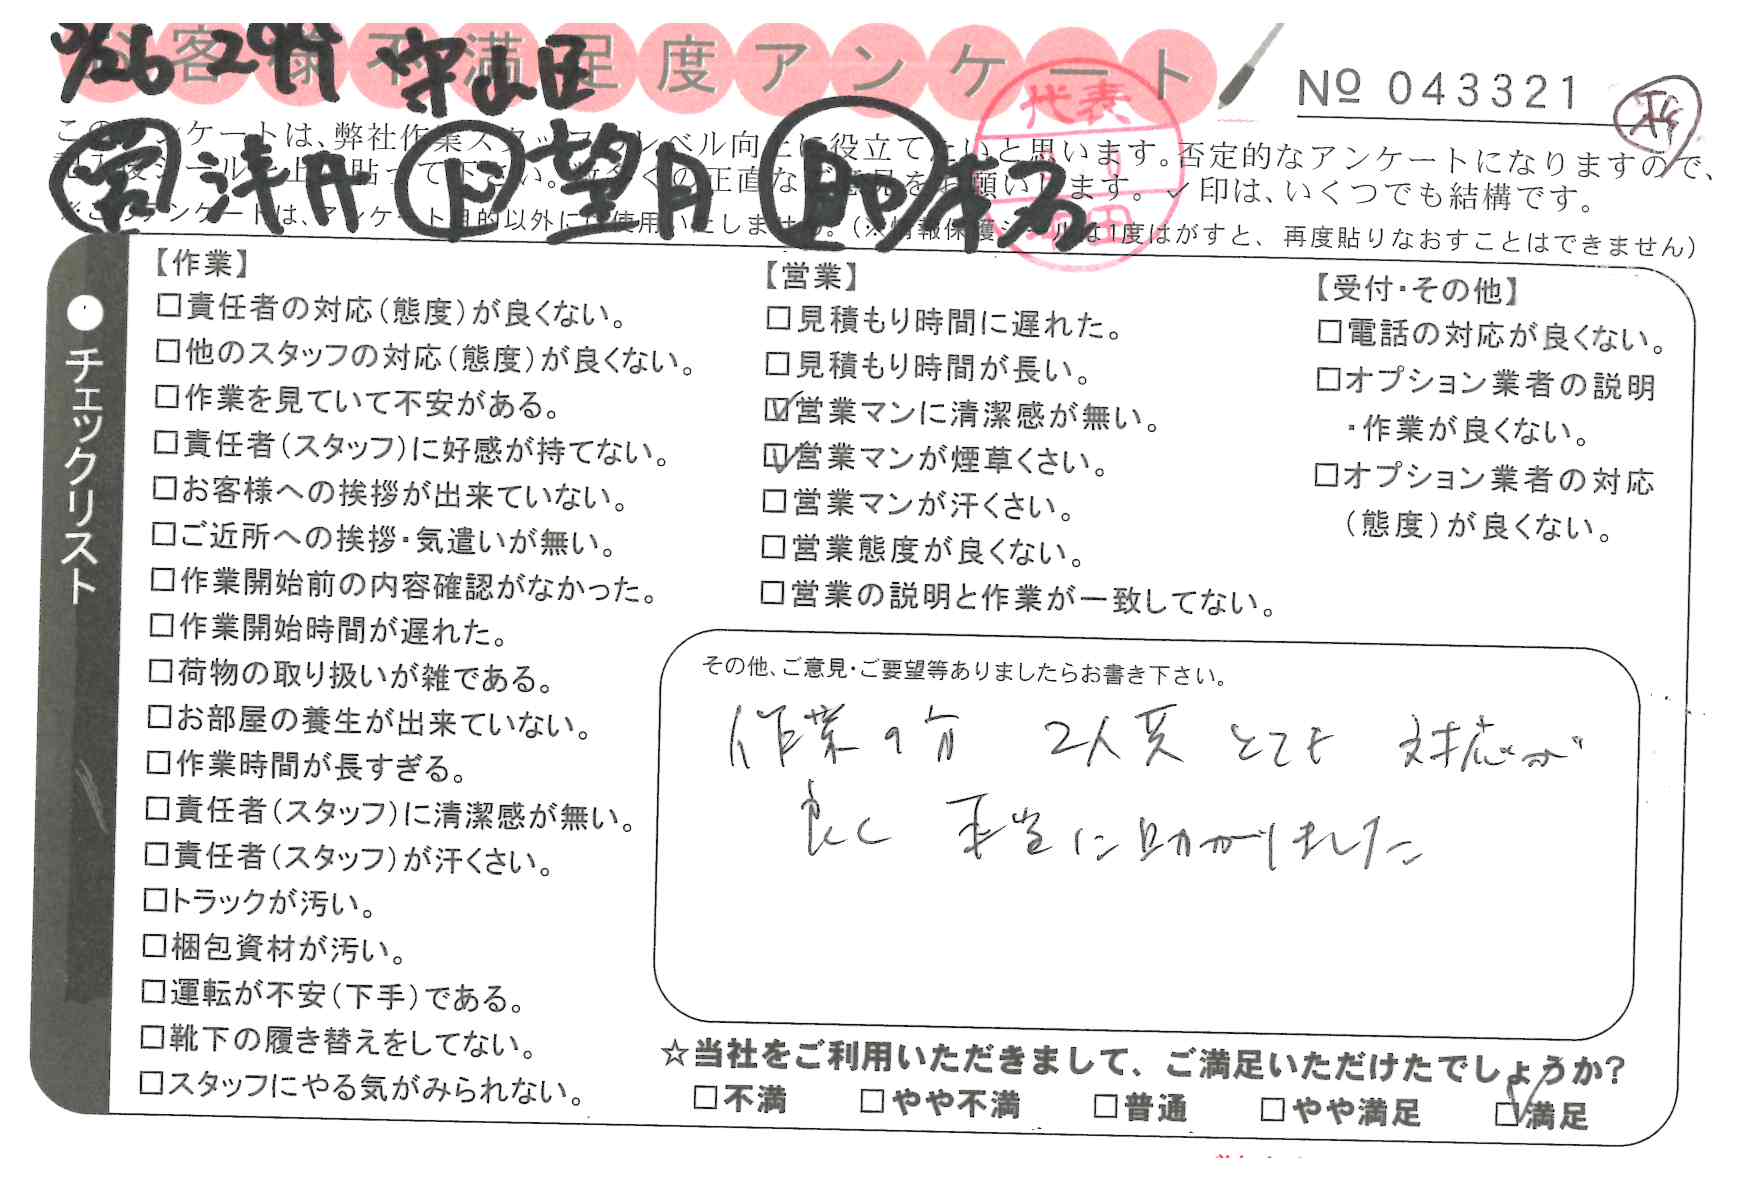 お客様不満足度アンケート
№ 043321
3/26 2件 守山区
このアンケートは、弊社作業スタッフのレベル向上に役立てたいと思います。否定的なアンケートになりますので、
記入後シールを上に貼って下さい。数多くの正直なご意見をお願いします。✓印は、いくつでも結構です。
※このアンケートは、アンケート目的以外には使用いたしません。(※情報保護シールは1度はがすと、再度貼りなおすことはできません)
営 浅井 下 望月
代表
●チェックリスト
【作業】
□責任者の対応(態度)が良くない。
□他のスタッフの対応(態度)が良くない。
□作業を見ていて不安がある。
□責任者(スタッフ)に好感が持てない。
□お客様への挨拶が出来ていない。
□ご近所への挨拶・気遣いが無い。
□作業開始前の内容確認がなかった。
□作業開始時間が遅れた。
□荷物の取り扱いが雑である。
□お部屋の養生が出来ていない。
□作業時間が長すぎる。
□責任者(スタッフ)に清潔感が無い。
□責任者(スタッフ)が汗くさい。
□トラックが汚い。
□梱包資材が汚い。
□運転が不安(下手)である。
□靴下の履き替えをしてない。
□スタッフにやる気がみられない。
【営業】
□見積もり時間に遅れた。
□見積もり時間が長い。
☑営業マンに清潔感が無い。
☑営業マンが煙草くさい。
□営業マンが汗くさい。
□営業態度が良くない。
□営業の説明と作業が一致してない。
【受付・その他】
□電話の対応が良くない。
□オプション業者の説明
・作業が良くない。
□オプション業者の対応
(態度)が良くない。
その他、ご意見・ご要望等ありましたらお書き下さい。
作業の方 2人共 とても 対応が
良く 本当に助かりました
☆当社をご利用いただきまして、ご満足いただけたでしょうか?
□不満 □やや不満 □普通 □やや満足 ☑満足